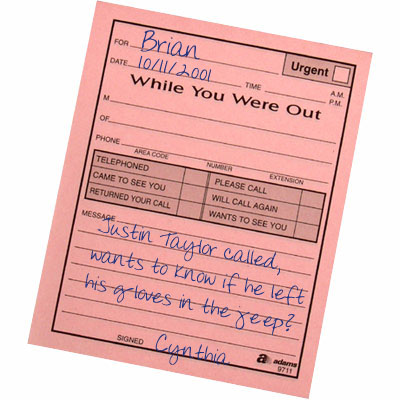 FOR Brian
Urgent
DATE 10/11/2001 TIME A.M.
P.M.
While You Were Out
M
OF
PHONE
AREA CODE NUMBER EXTENSION
TELEPHONED PLEASE CALL
CAME TO SEE YOU WILL CALL AGAIN
RETURNED YOUR CALL WANTS TO SEE YOU
MESSAGE
Justin Taylor called,
wants to know if he left
his gloves in the jeep?
SIGNED Cynthia
a adams
9711